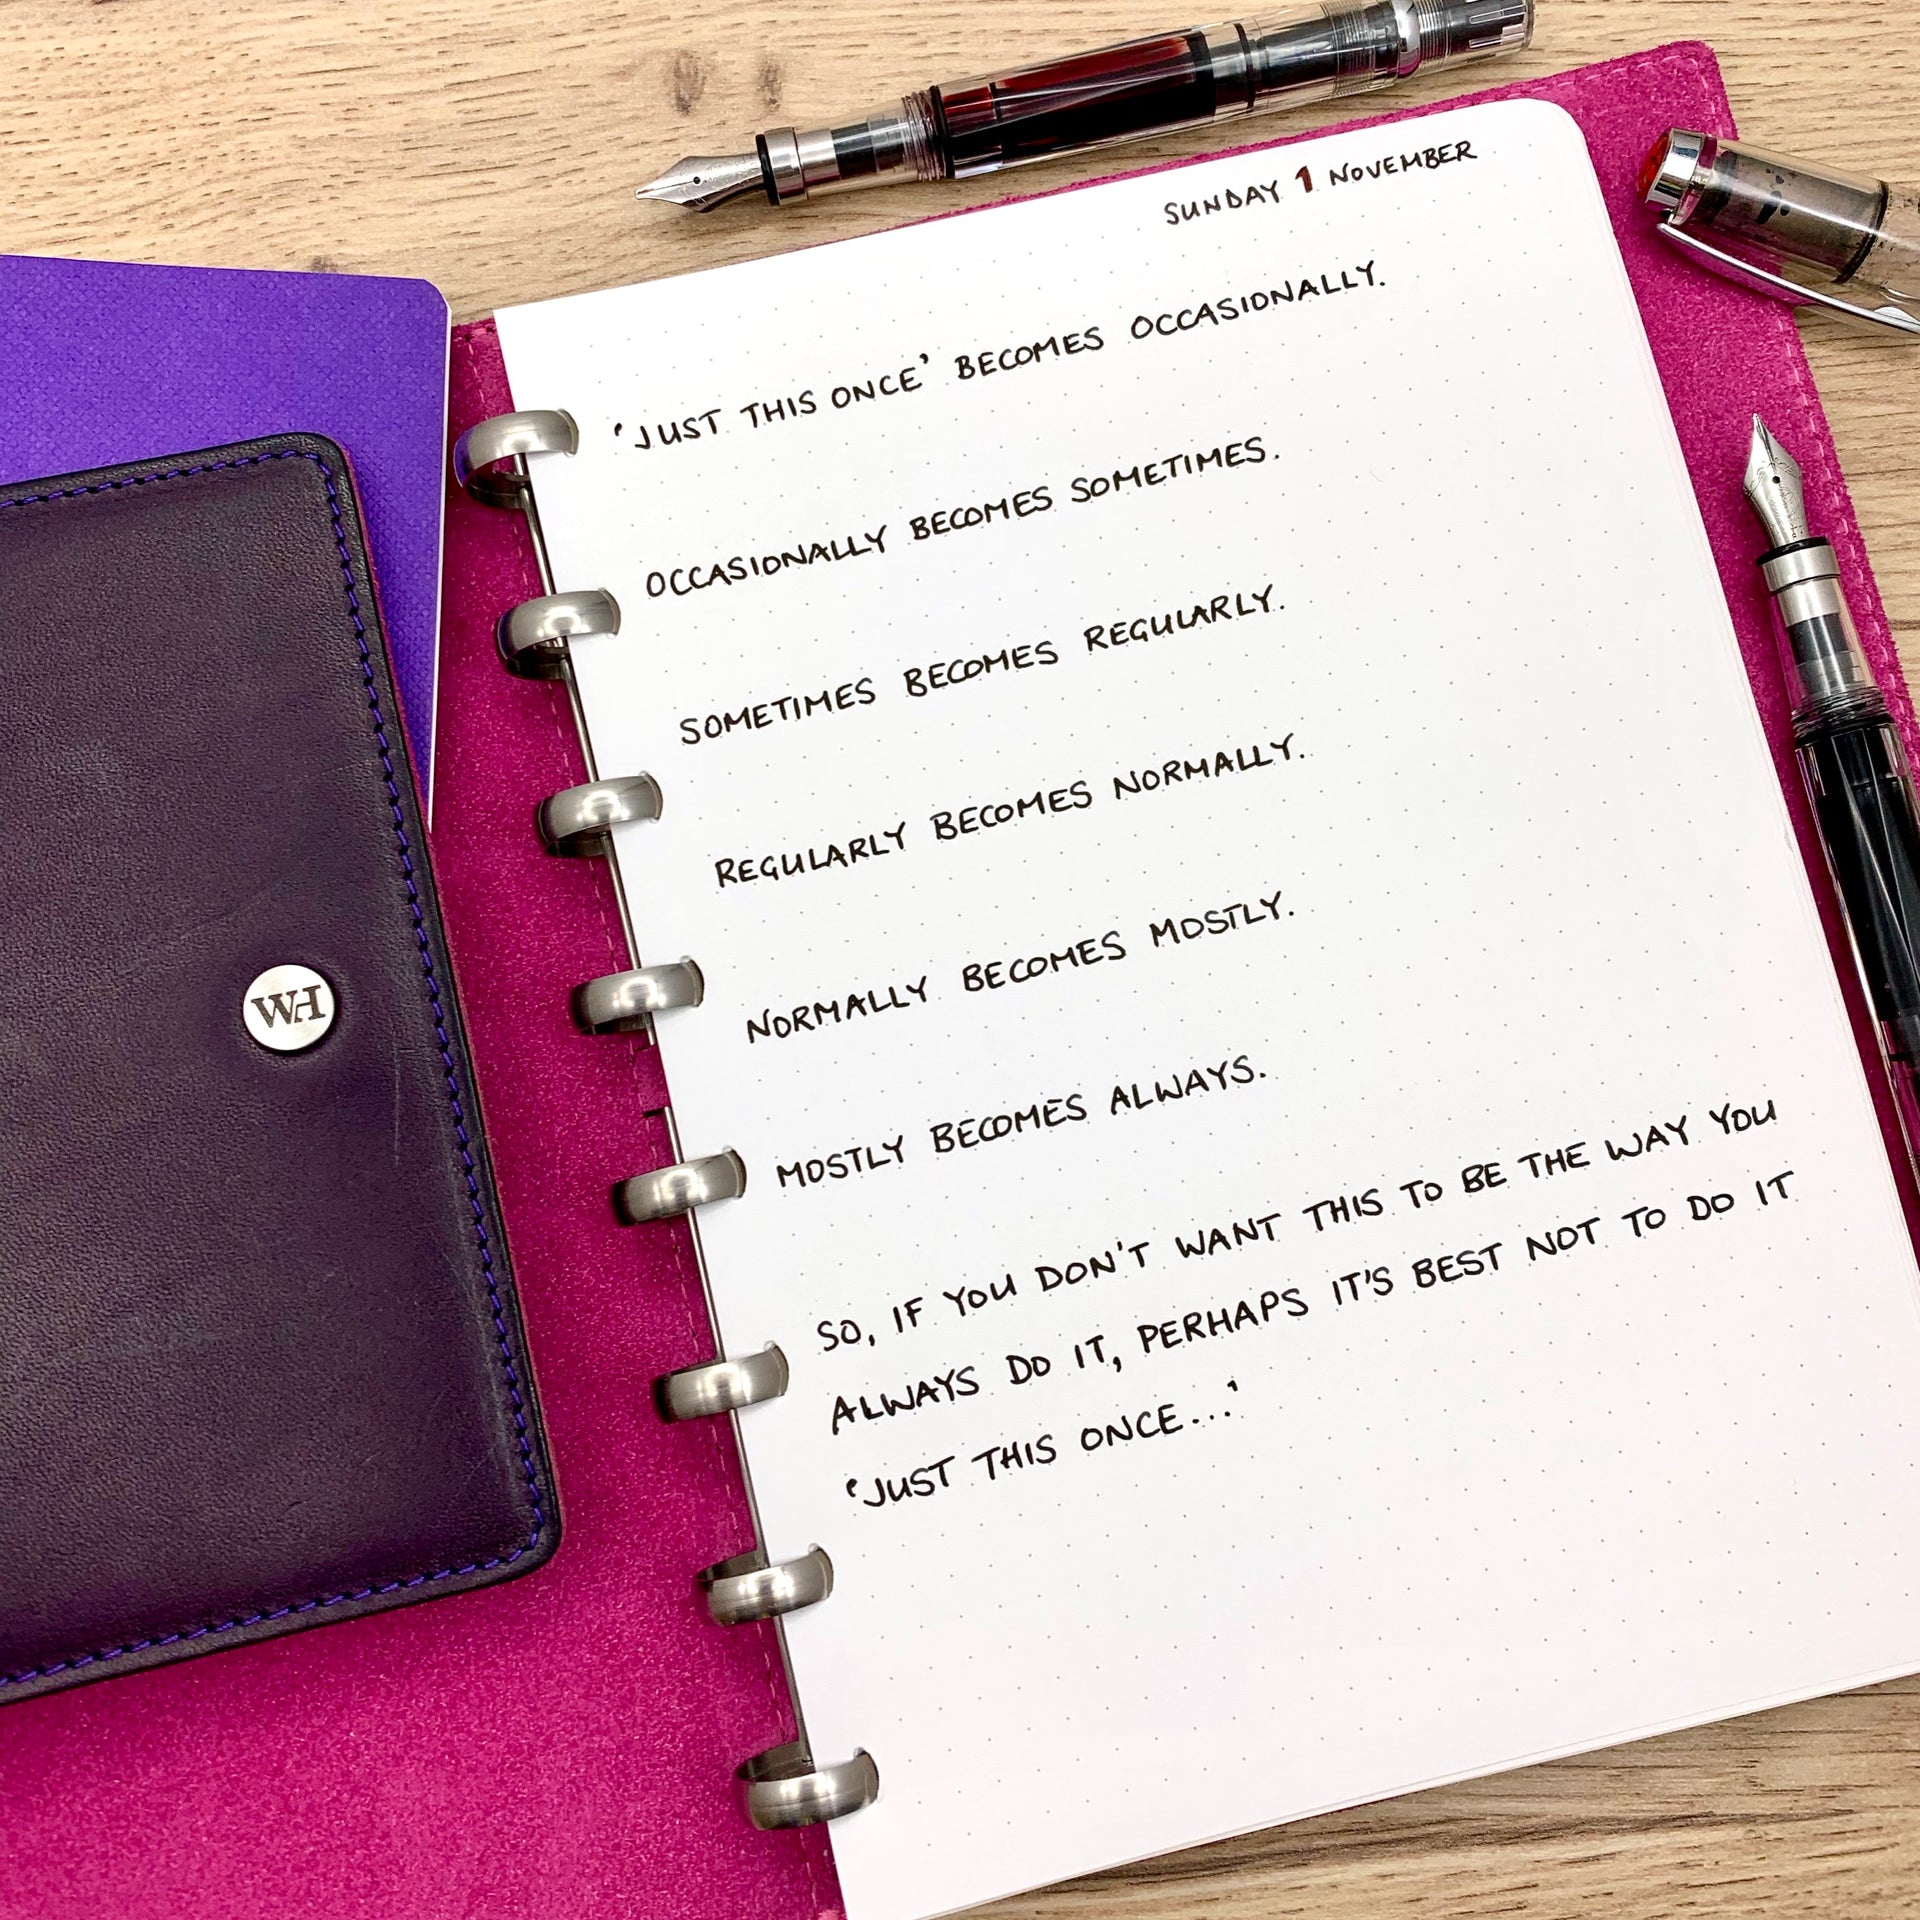 SUNDAY 1 NOVEMBER
'JUST THIS ONCE' BECOMES OCCASIONALLY.
OCCASIONALLY BECOMES SOMETIMES.
SOMETIMES BECOMES REGULARLY.
REGULARLY BECOMES NORMALLY.
NORMALLY BECOMES MOSTLY.
MOSTLY BECOMES ALWAYS.
SO, IF YOU DON'T WANT THIS TO BE THE WAY YOU
ALWAYS DO IT, PERHAPS IT'S BEST NOT TO DO IT
'JUST THIS ONCE...'
WH